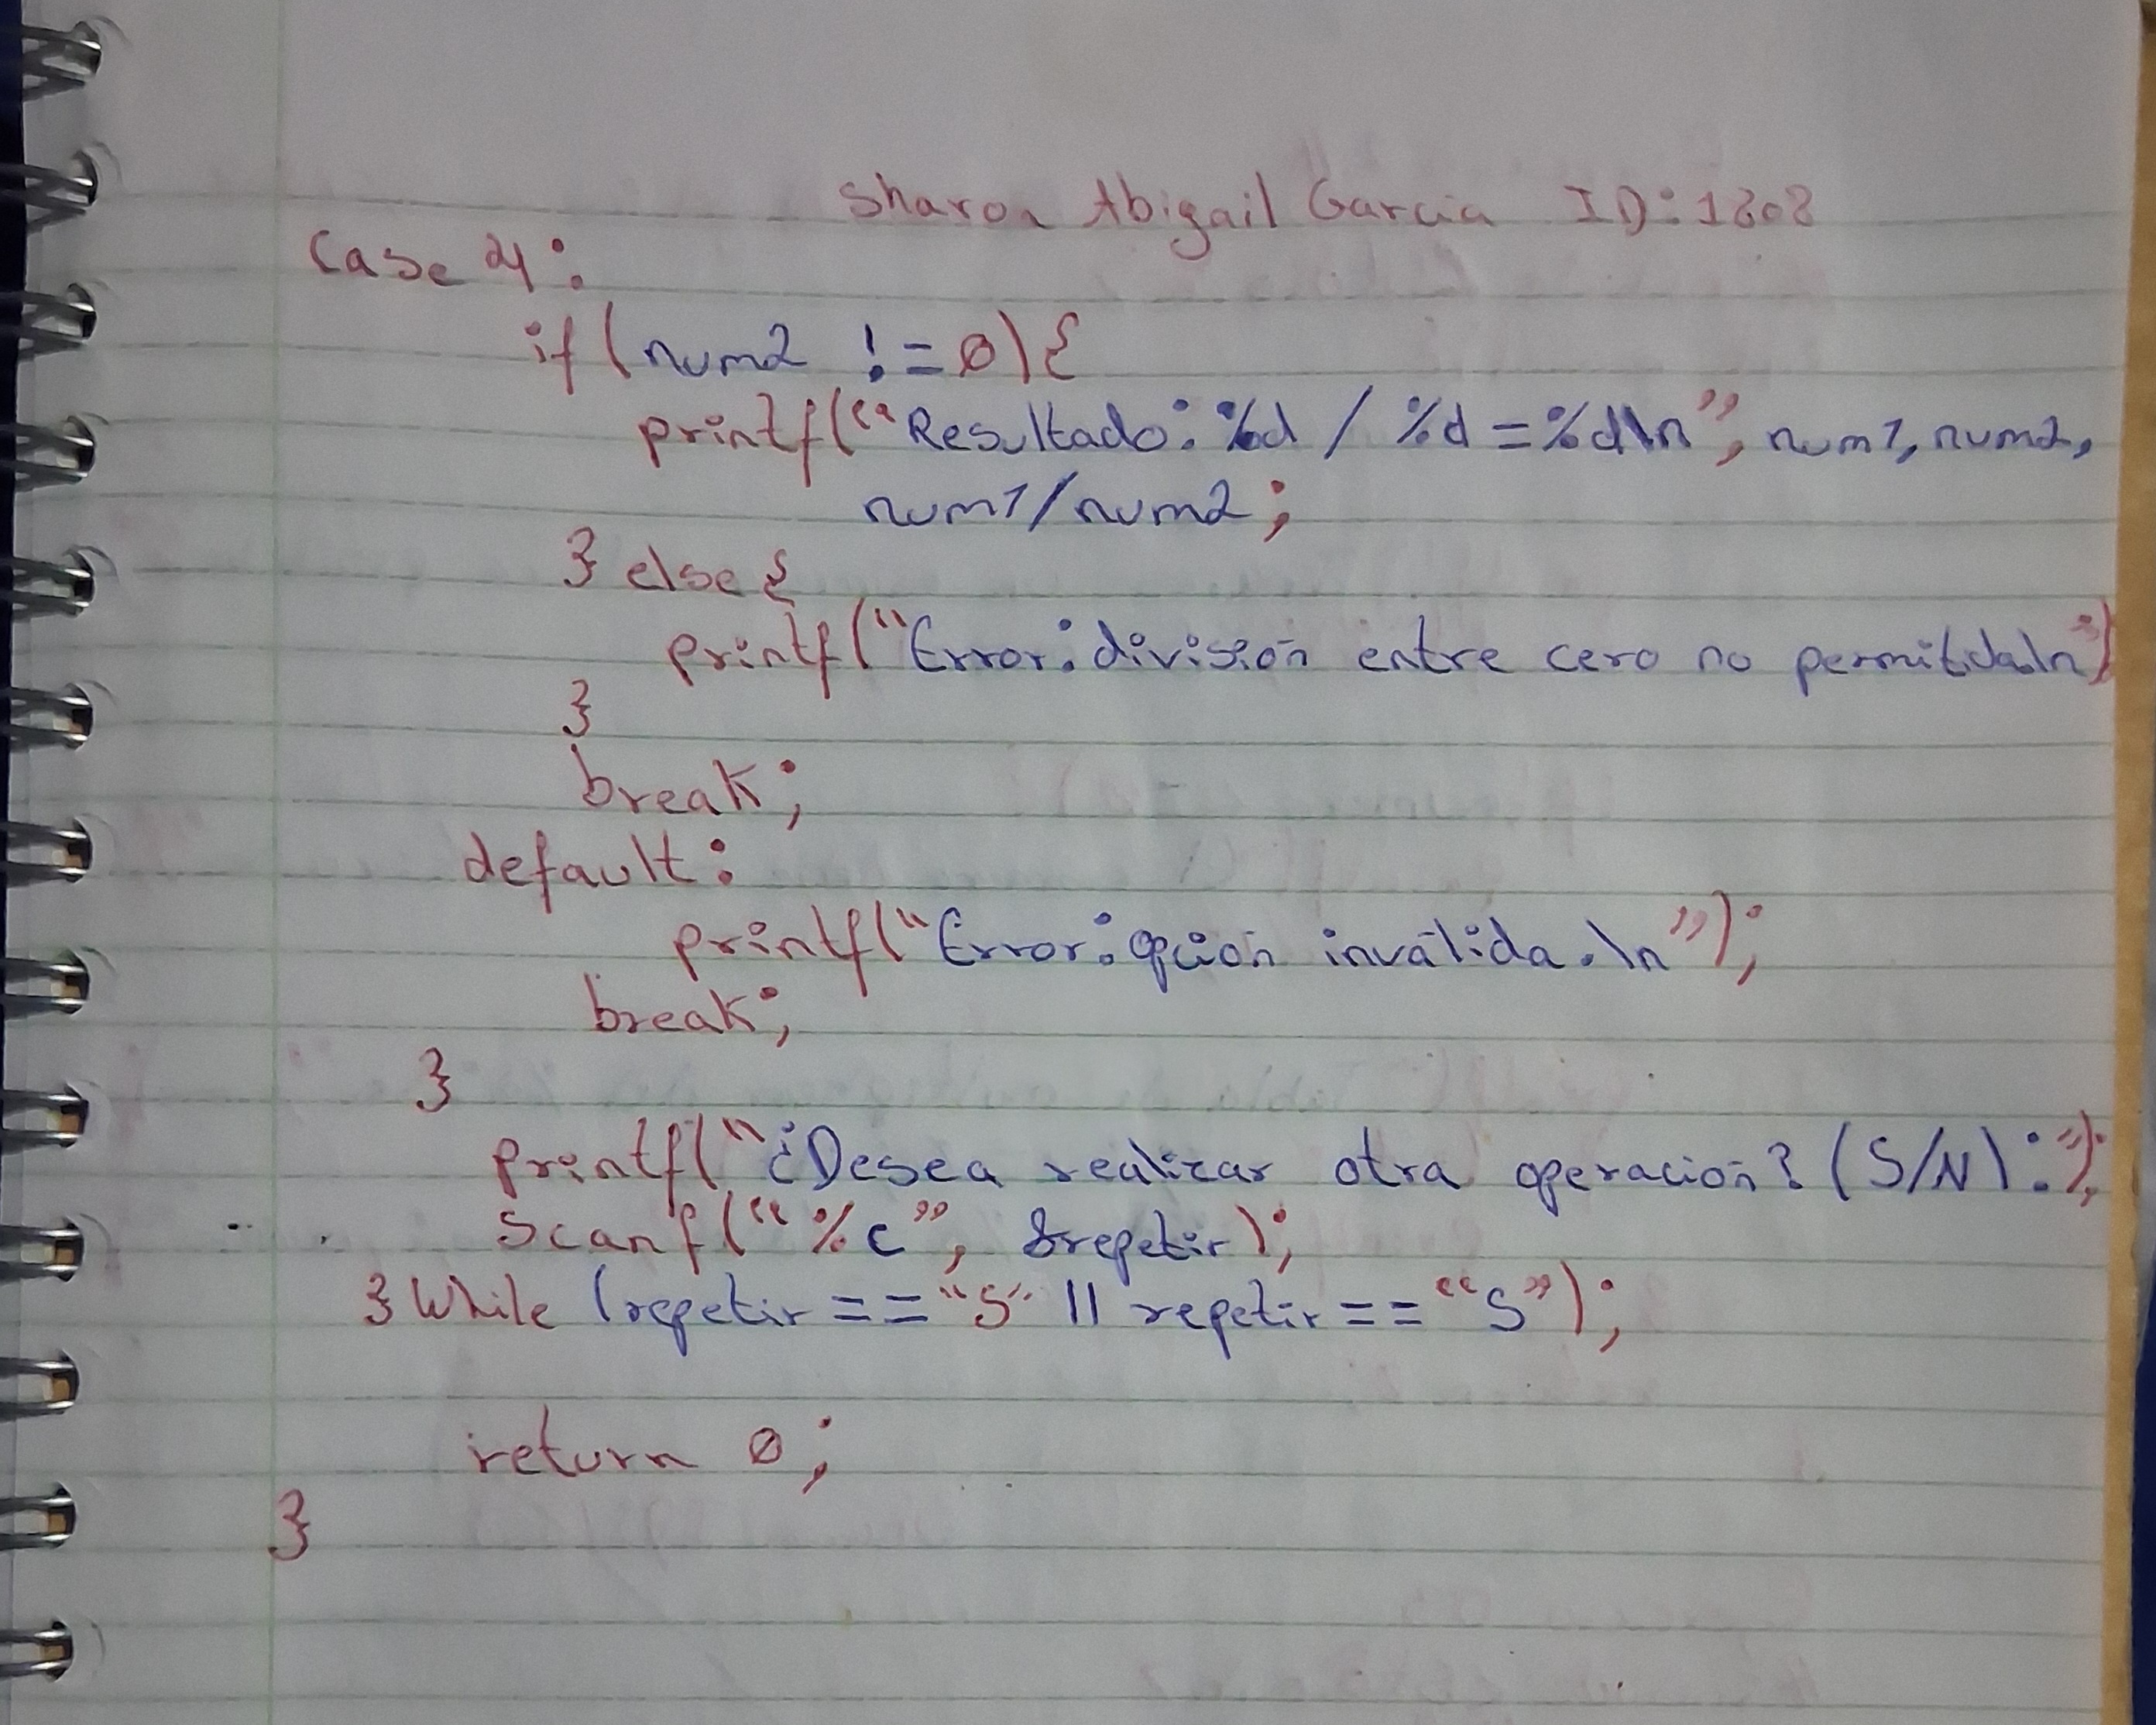 Sharon Abigail Garcia ID:1808
Case 4:
if(num2 !=0){
printf("Resultado: %d / %d =%d\n", num1, num2,
num1/num2;
} else {
printf("Error: división entre cero no permitida\n")
}
break;
default:
printf("Error: opción inválida.\n");
break;
}
printf("¿Desea realizar otra operación? (S/N):");
Scanf("%c", &repetir);
} While (repetir == "S" || repetir == "S");
return 0;
}